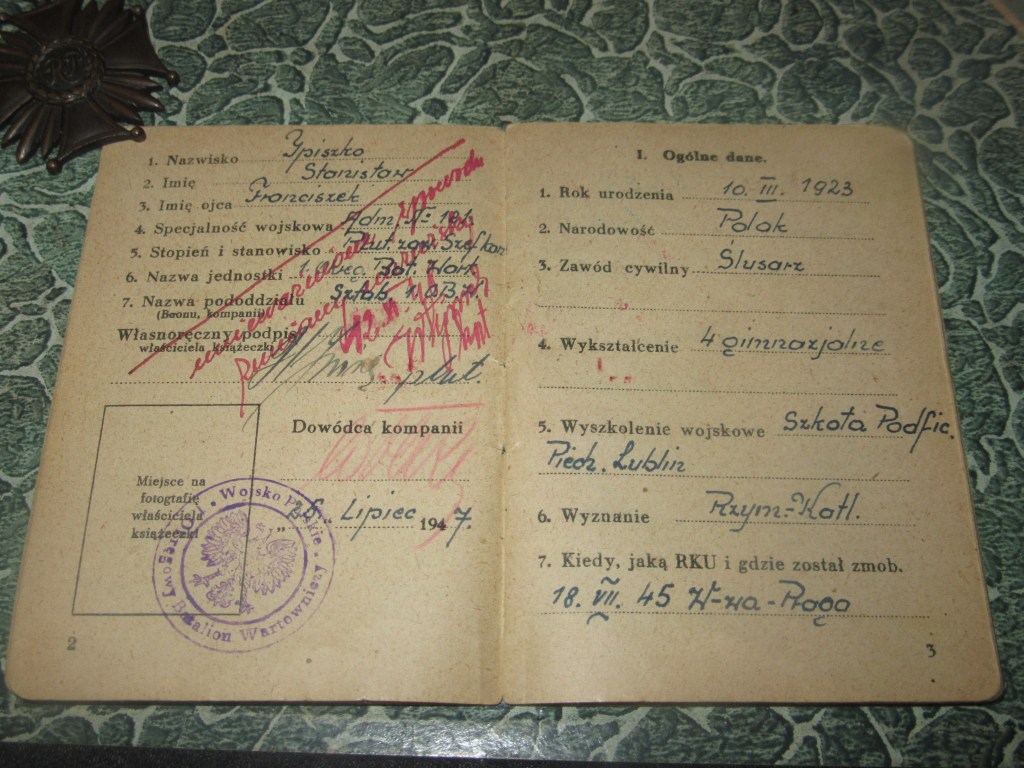 1. Nazwisko Ypiszko
2. Imię Stanisław
3. Imię ojca Franciszek
4. Specjalność wojskowa Adm. №
5. Stopień i stanowisko Plut. zaw. Szef kom
6. Nazwa jednostki 1. Okręg. Bat. Wart.
7. Nazwa pododdziału Sztab. 1. O.B.W.
(Baonu, kompanii)
unieważniam z powodu
Własnoręczny podpis
właściciela książeczki
plut.
Dowódca kompanii
Miejsce na
fotografię
właściciela
książeczki
„26„ Lipiec 1947.
Wojsko Polskie • Okręgowy Batalion Wartowniczy
2
I. Ogólne dane.
1. Rok urodzenia 10. III. 1923
2. Narodowość Polak
3. Zawód cywilny Ślusarz
4. Wykształcenie 4 gimnazjalne
5. Wyszkolenie wojskowe Szkoła Podfic.
Piech. Lublin
6. Wyznanie Rzym.-Katl.
7. Kiedy, jaką RKU i gdzie został zmob.
18. VII. 45 W-wa-Praga
3